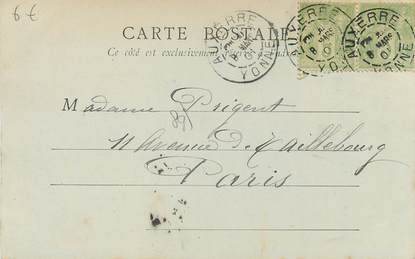 6 €
CARTE POSTALE
Ce côté est exclusivement
AUXERRE
8 MARS
01
YONNE
AUXERRE
8 MARS
YONNE
AUXERRE
8 MARS
YONNE
Madame Prigent
11 Avenue de Taillebourg
Paris